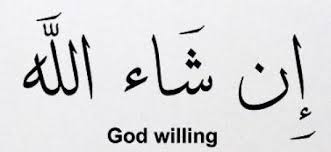 إِن شَاء اللَّه
God willing